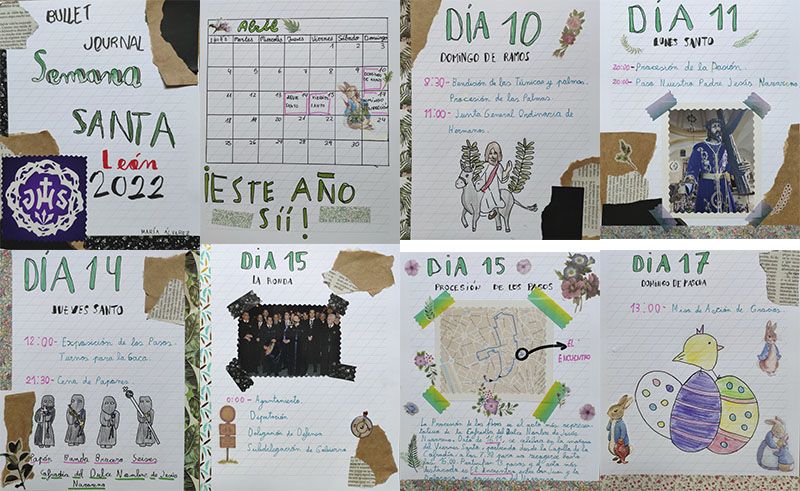 BULLET
JOURNAL
Semana
SANTA
León
2022
JHS
MARÍA ÁLVAREZ
Abril
Martes Miércoles Jueves Viernes Sábado Domingo
1 2 3
4 5 6 7 8 9 10
DOMINGO DE RAMOS
11 12 13 14 15 16 17
JUEVES SANTO VIERNES SANTO DOMINGO
18 19 20 21 22 24
25 26 27 28 29 30
¡ESTE AÑO
SÍÍ!
DÍA 10
DOMINGO DE RAMOS
9:30- Bendición de las Túnicas y palmas.
Procesión de las Palmas.
11:00- Junta General Ordinaria de
Hermanos.
DÍA 11
LUNES SANTO
20:00- Procesión de la Pasión.
20:00- Paso Nuestro Padre Jesús Nazareno
DÍA 14
JUEVES SANTO
12:00- Exposición de los Pasos.
Turnos para la Saca.
21:30- Cena de Papones.
Papón Banda Bracero Seises
Cofradía del Dulce Nombre de Jesús
Nazareno
DÍA 15
LA RONDA
0:00- Ayuntamiento.
Diputación
Delegación de Defensa
Subdelegación de Gobierno
DIA 15
PROCESIÓN DE LOS PASOS
EL
ENCUENTRO
La Procesión de los Pasos es el acto más represen-
tativo de la Cofradía del Dulce Nombre de Jesús
Nazareno. Data de 1611, se celebra en la mañana
del Viernes Santo partiendo desde la Capilla de la
Cofradía a las 7:30 para su recogerse hasta
las 15:00. Participan 13 pasos y el acto más
destacado es El encuentro entre San Juan y la
Dolorosa
DIA 17
DOMINGO DE PASCUA
13:00- Misa de Acción de Gracias.